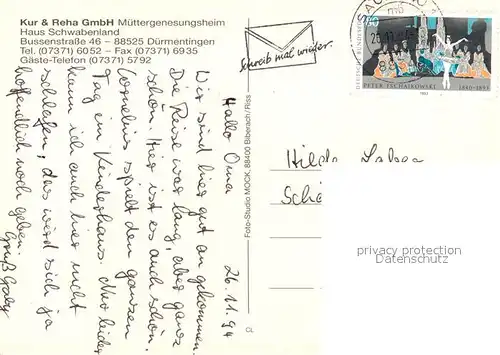 Kur & Reha GmbH Müttergenesungsheim
Haus Schwabenland
Bussenstraße 46 – 88525 Dürmentingen
Tel. (07371) 6052 – Fax (07371) 6935
Gäste-Telefon (07371) 5792
schreib mal wieder.
DEUTSCHE BUNDESPOST
PETER TSCHAIKOWSKI 1840-1893
26.11.94
Hallo Oma
Wir sind hier gut angekommen.
Die Reise war lang, aber ganz
schön. Hier ist es auch schön.
Cornelius spielt den ganzen
Tag im Kinderhaus. Nur leider
kann ich auch hier nicht
schlafen, das wird sich ja
hoffentlich noch geben.
Gruß Gaby
Foto-Studio MOCK, 88400 Biberach/Riss
CL
Hilde
privacy protection
Datenschutz